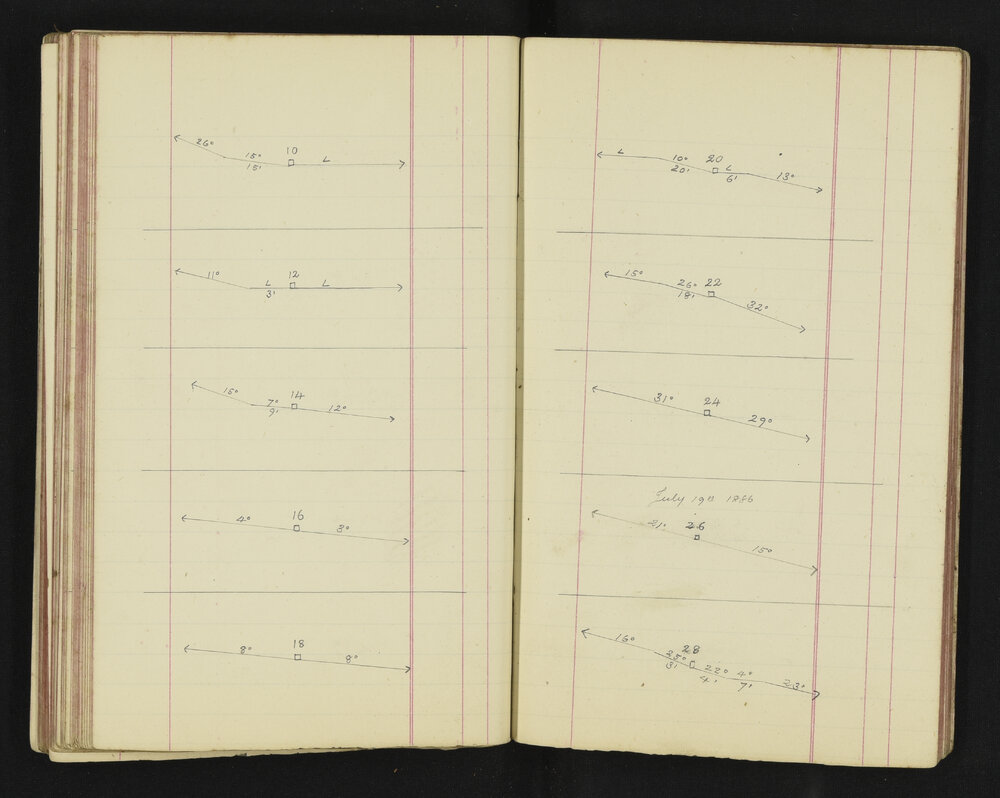 26° 15° 10 L
15'
11° L 12 L
3'
15° 7° 14 12°
9'
4° 16 3°
8° 18 8°
L 10° 20 L 13°
20' 6'
15° 26° 22 32°
18'
31° 24 29°
July 19th 1886
21° 26 15°
16° 25° 28 22° 4° 23°
3' 4' 7'